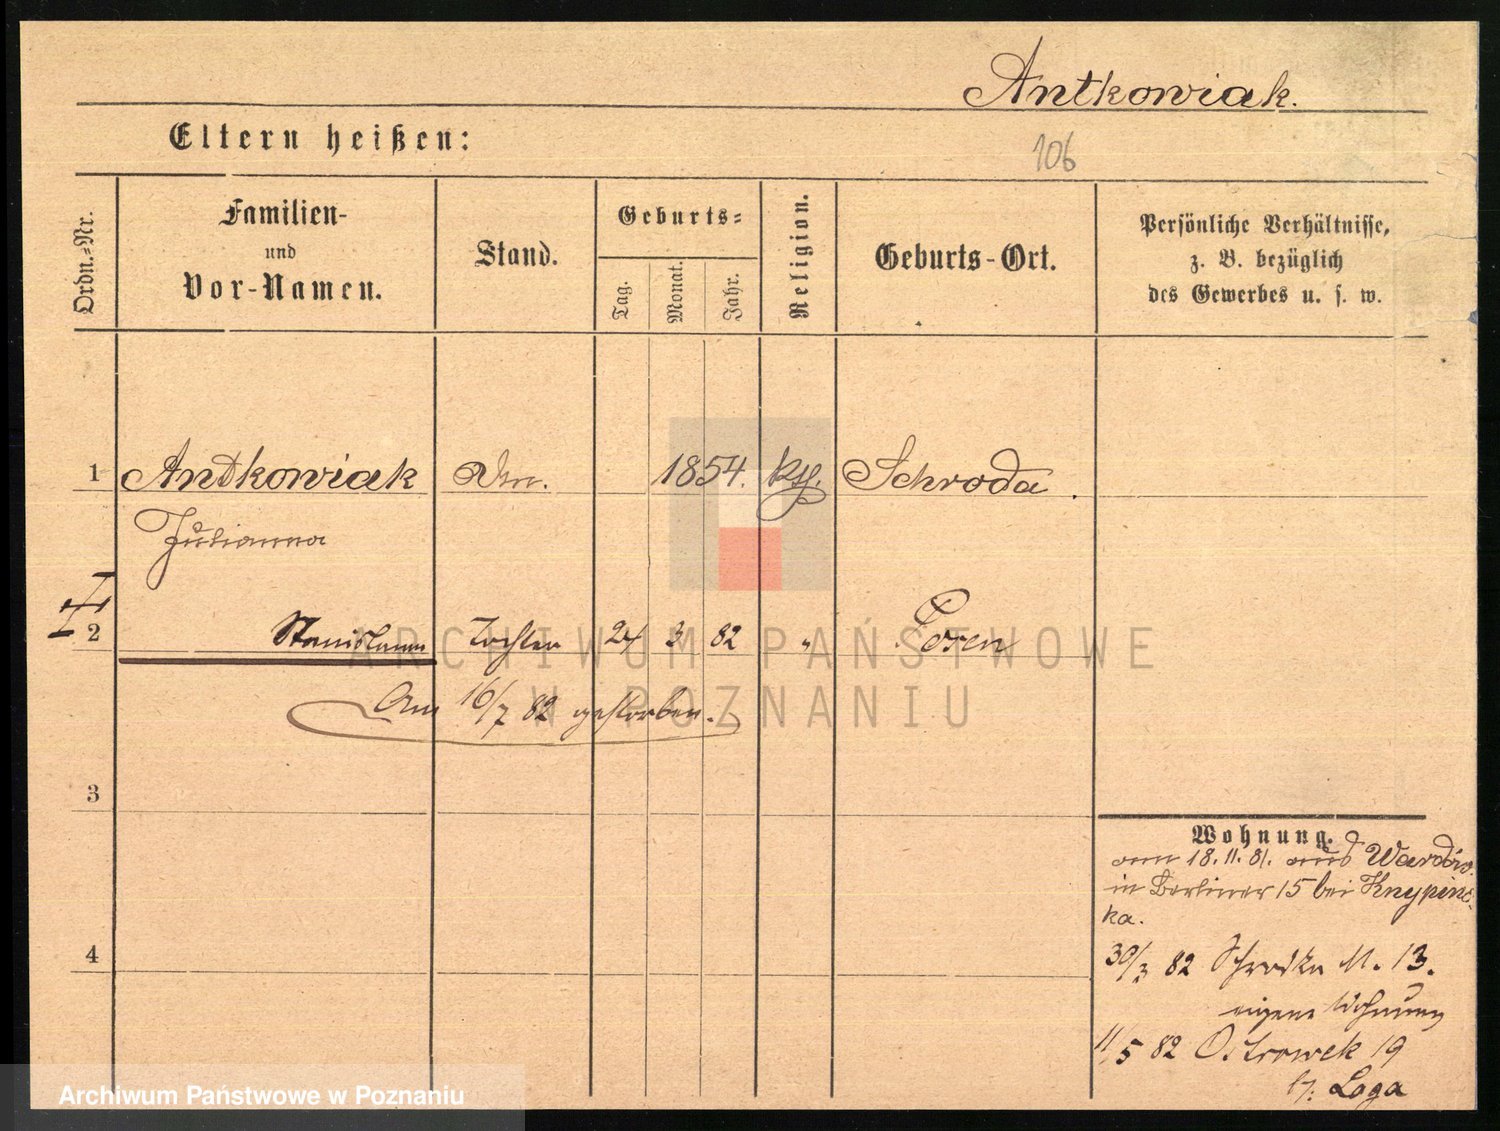 Antkowiak.
Eltern heißen:
106
Ordn.-Nr.
Familien-
und
Vor-Namen.
Stand.
Geburts-
Tag.
Monat.
Jahr.
Religion.
Geburts-Ort.
Persönliche Verhältnisse,
z. B. bezüglich
des Gewerbes u. s. w.
1 Antkowiak 1854. Schroda.
Julianna
2 Stanislawa Tochter 24 3 82 " Posen
Am 16/7 82 gestorben.
3
Wohnung.
18.11.81. aus
in Berliner 15 bei Knypins-
ka.
4
30/3 82 Schrodka 11. 13.
eigene Wohnung
11/5 82 Ostrowek 19
b: Loga
ARCHIWUM PAŃSTWOWE
W POZNANIU
Archiwum Państwowe w Poznaniu